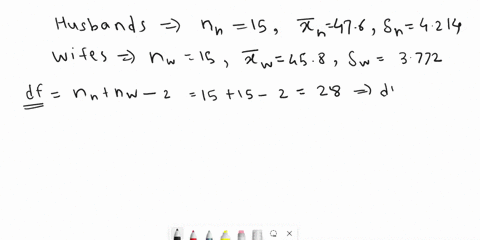 Husbands ⇒ nₕ = 15, x̄ₕ = 47.6, Sₕ = 4.214
Wifes ⇒ n_w = 15, x̄_w = 45.8, S_w = 3.772
df = nₕ + n_w - 2 = 15 + 15 - 2 = 28 ⇒ d